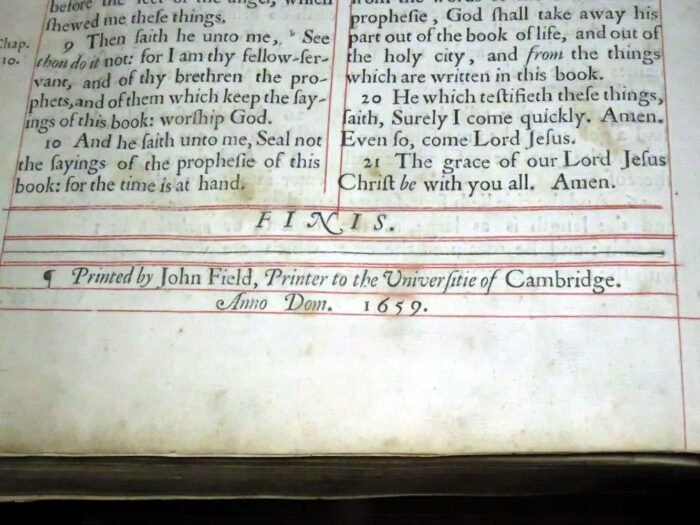 before the feet of the angel, which
ſhewed me theſe things.
Chap.
10.
9 Then ſaith he unto me, ᵇ See
thou do it not: for I am thy fellow-ſer-
vant, and of thy brethren the pro-
phets, and of them which keep the ſay-
ings of this book: worſhip God.
10 And he ſaith unto me, Seal not
the ſayings of the propheſie of this
book: for the time is at hand.
from the words of the
propheſie, God ſhall take away his
part out of the book of life, and out of
the holy city, and from the things
which are written in this book.
20 He which teſtifieth theſe things,
ſaith, Surely I come quickly. Amen.
Even ſo, come Lord Jeſus.
21 The grace of our Lord Jeſus
Chriſt be with you all. Amen.
FINIS.
¶ Printed by John Field, Printer to the Univerſitie of Cambridge.
Anno Dom. 1659.